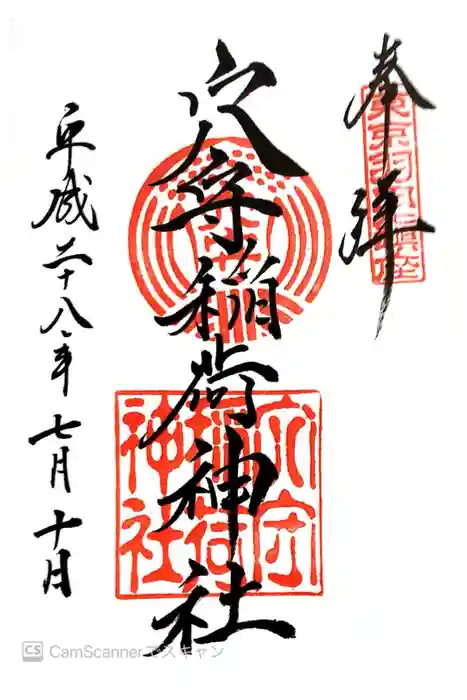 奉拝
東京羽田鎮座
穴守稲荷神社
穴守
稲荷
神社
平成二十八年七月十日
CS CamScannerでスキャン